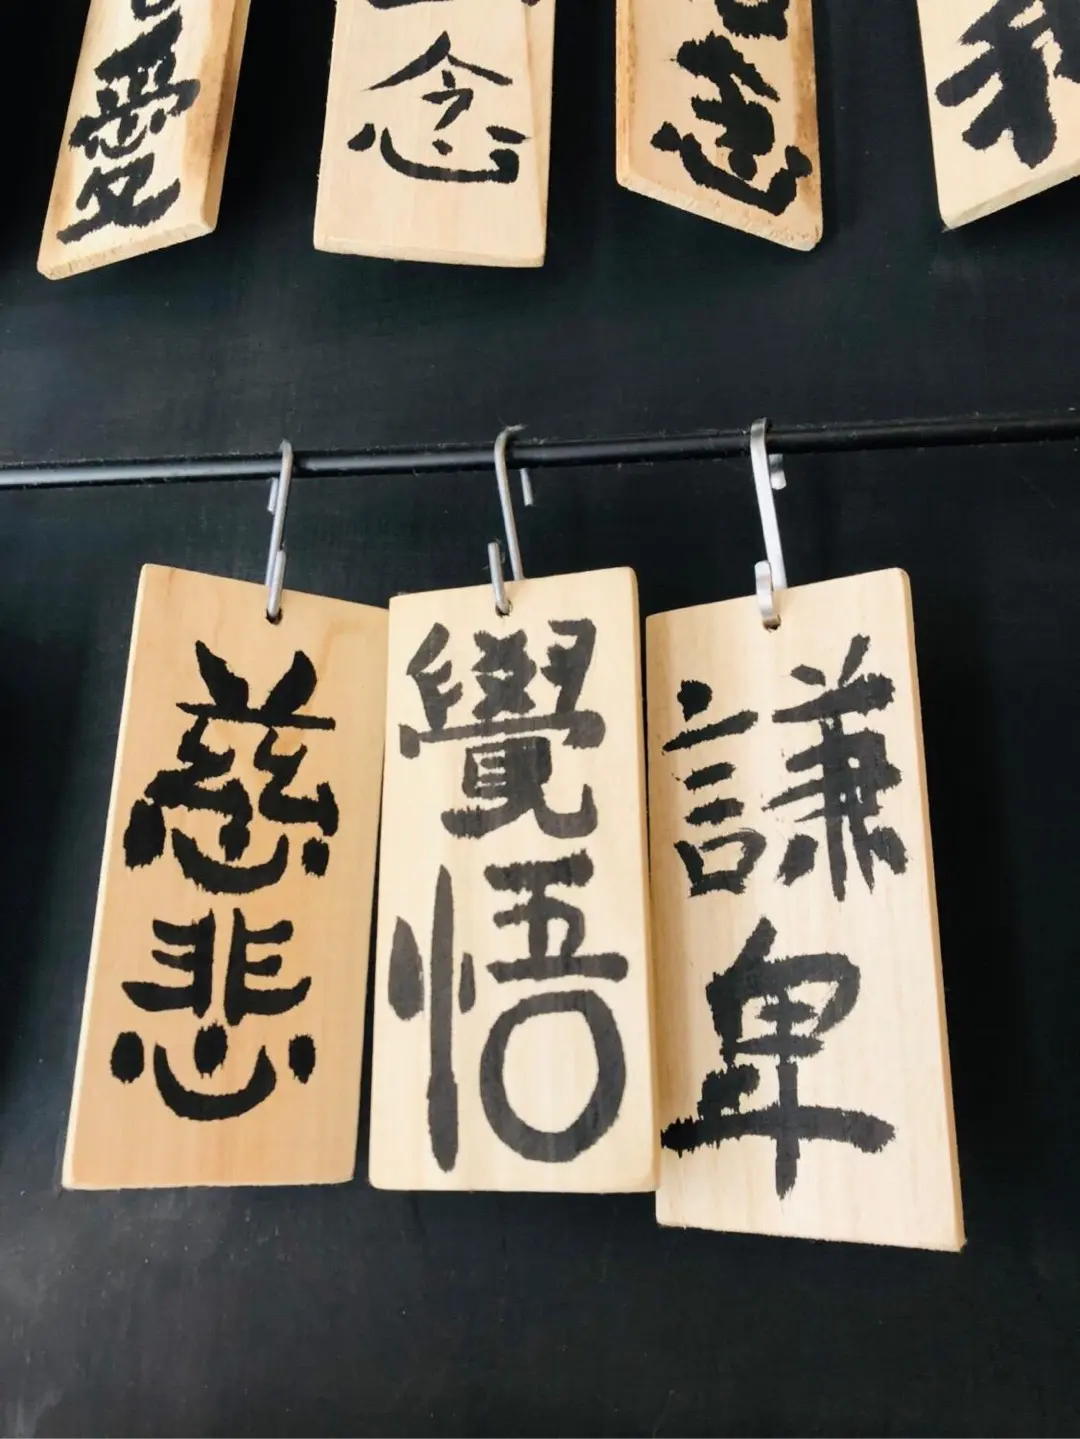 愛
念
慈悲
覺悟
謙卑